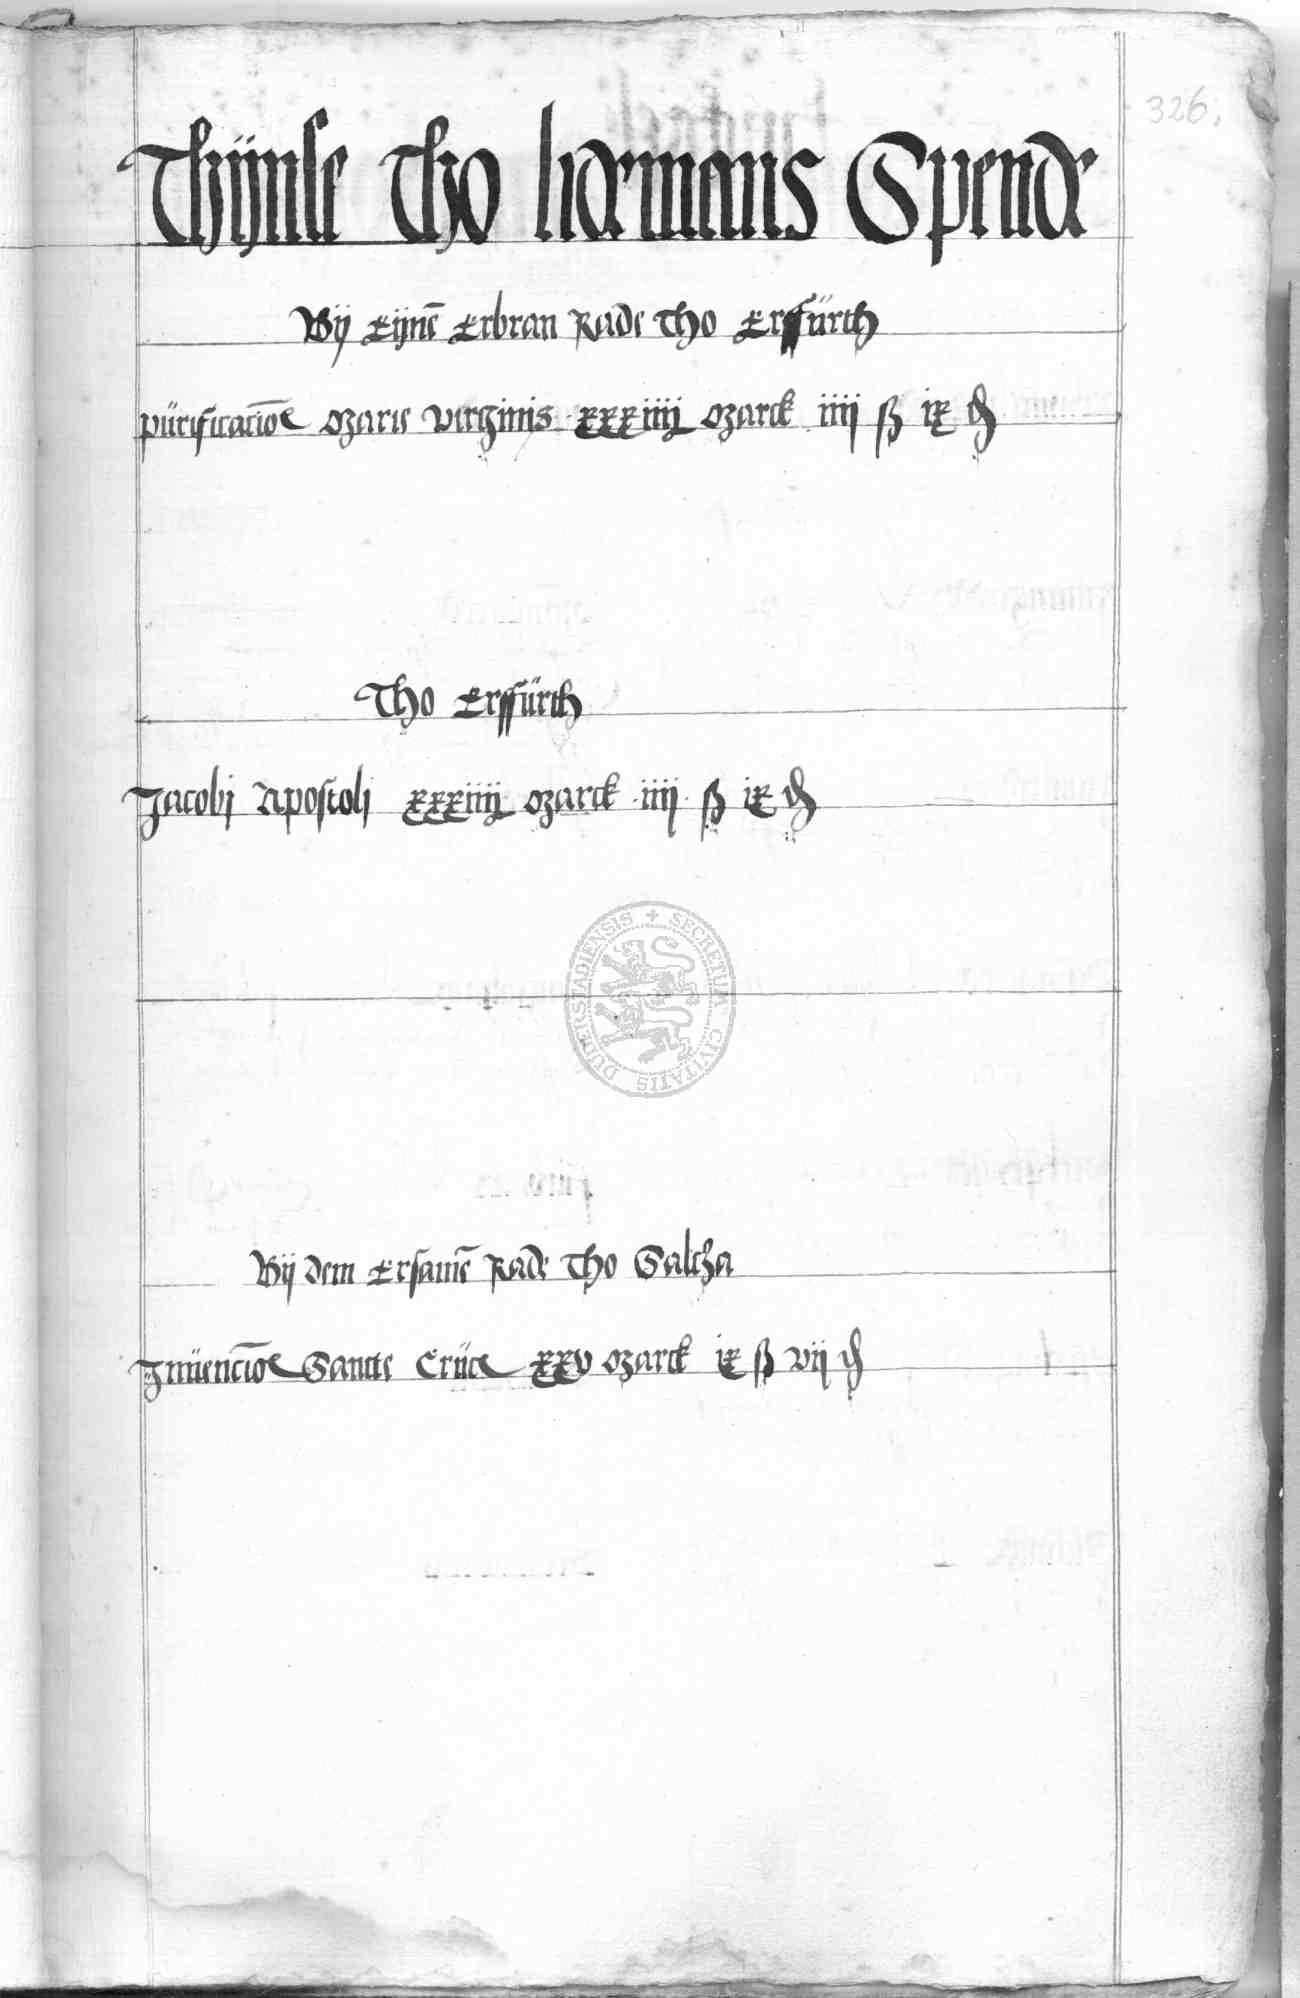 326.
Thijnse Tho hermens Spende
Bij Eijnē Erbran Rade tho Erffürth
pürificatiōe Marie virginis xxxiiij Marck iiij ß ix ₰
Tho Erffürth
Jacobi Apostoli xxxiiij Marck iiij ß ix ₰
SECRETUM CIVITATIS DUDERSTADIENSIS
Bij dem Ersamē Rade tho Saltza
Jnüenciōe Sancte Crüce xxv Marck ix ß vij ₰